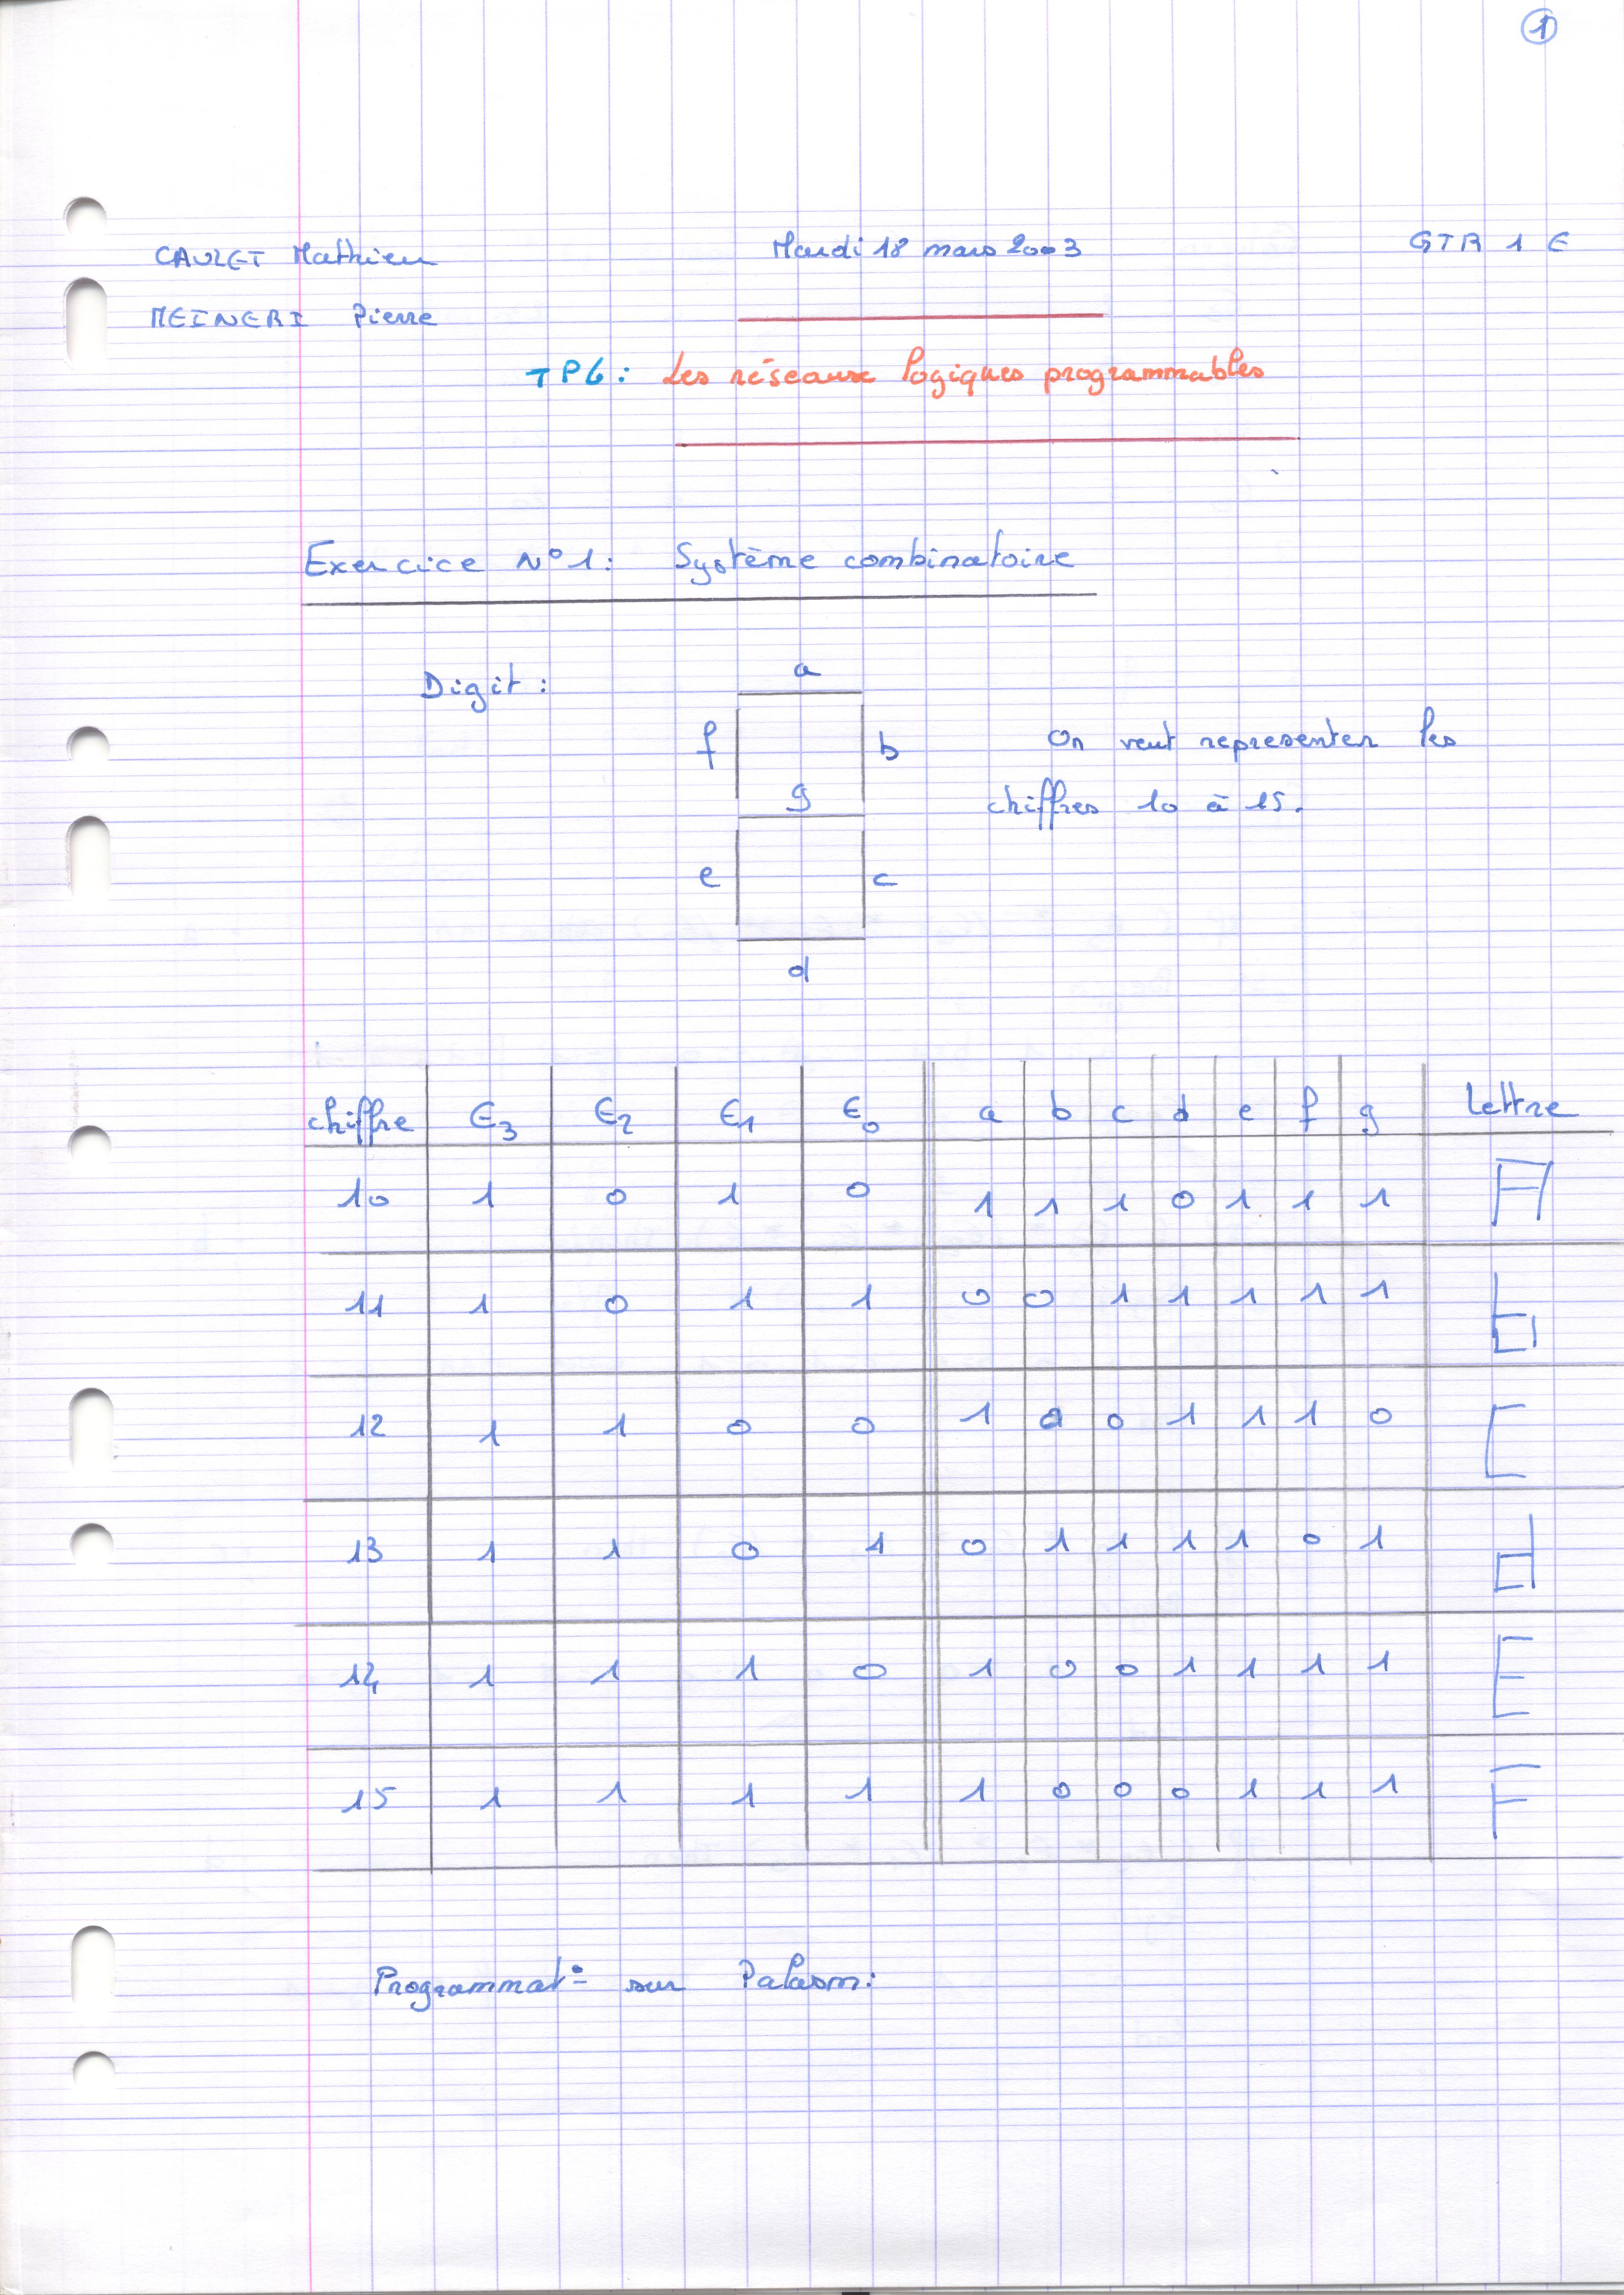 1
CAULET Mathieu Mardi 18 mars 2003 GTR 1 E
MEINERI Pierre
TP6: Les réseaux logiques programmables
Exercice N°1: Système combinatoire
Digit :
a
f b
g
e c
d
On veut representer les
chiffres 10 à 15.
chiffre E3 E2 E1 E0 a b c d e f g lettre
10 1 0 1 0 1 1 1 0 1 1 1 A
11 1 0 1 1 0 0 1 1 1 1 1 b
12 1 1 0 0 1 0 0 1 1 1 0 C
13 1 1 0 1 0 1 1 1 1 0 1 d
14 1 1 1 0 1 0 0 1 1 1 1 E
15 1 1 1 1 1 0 0 0 1 1 1 F
Programmat° sur Palasm: